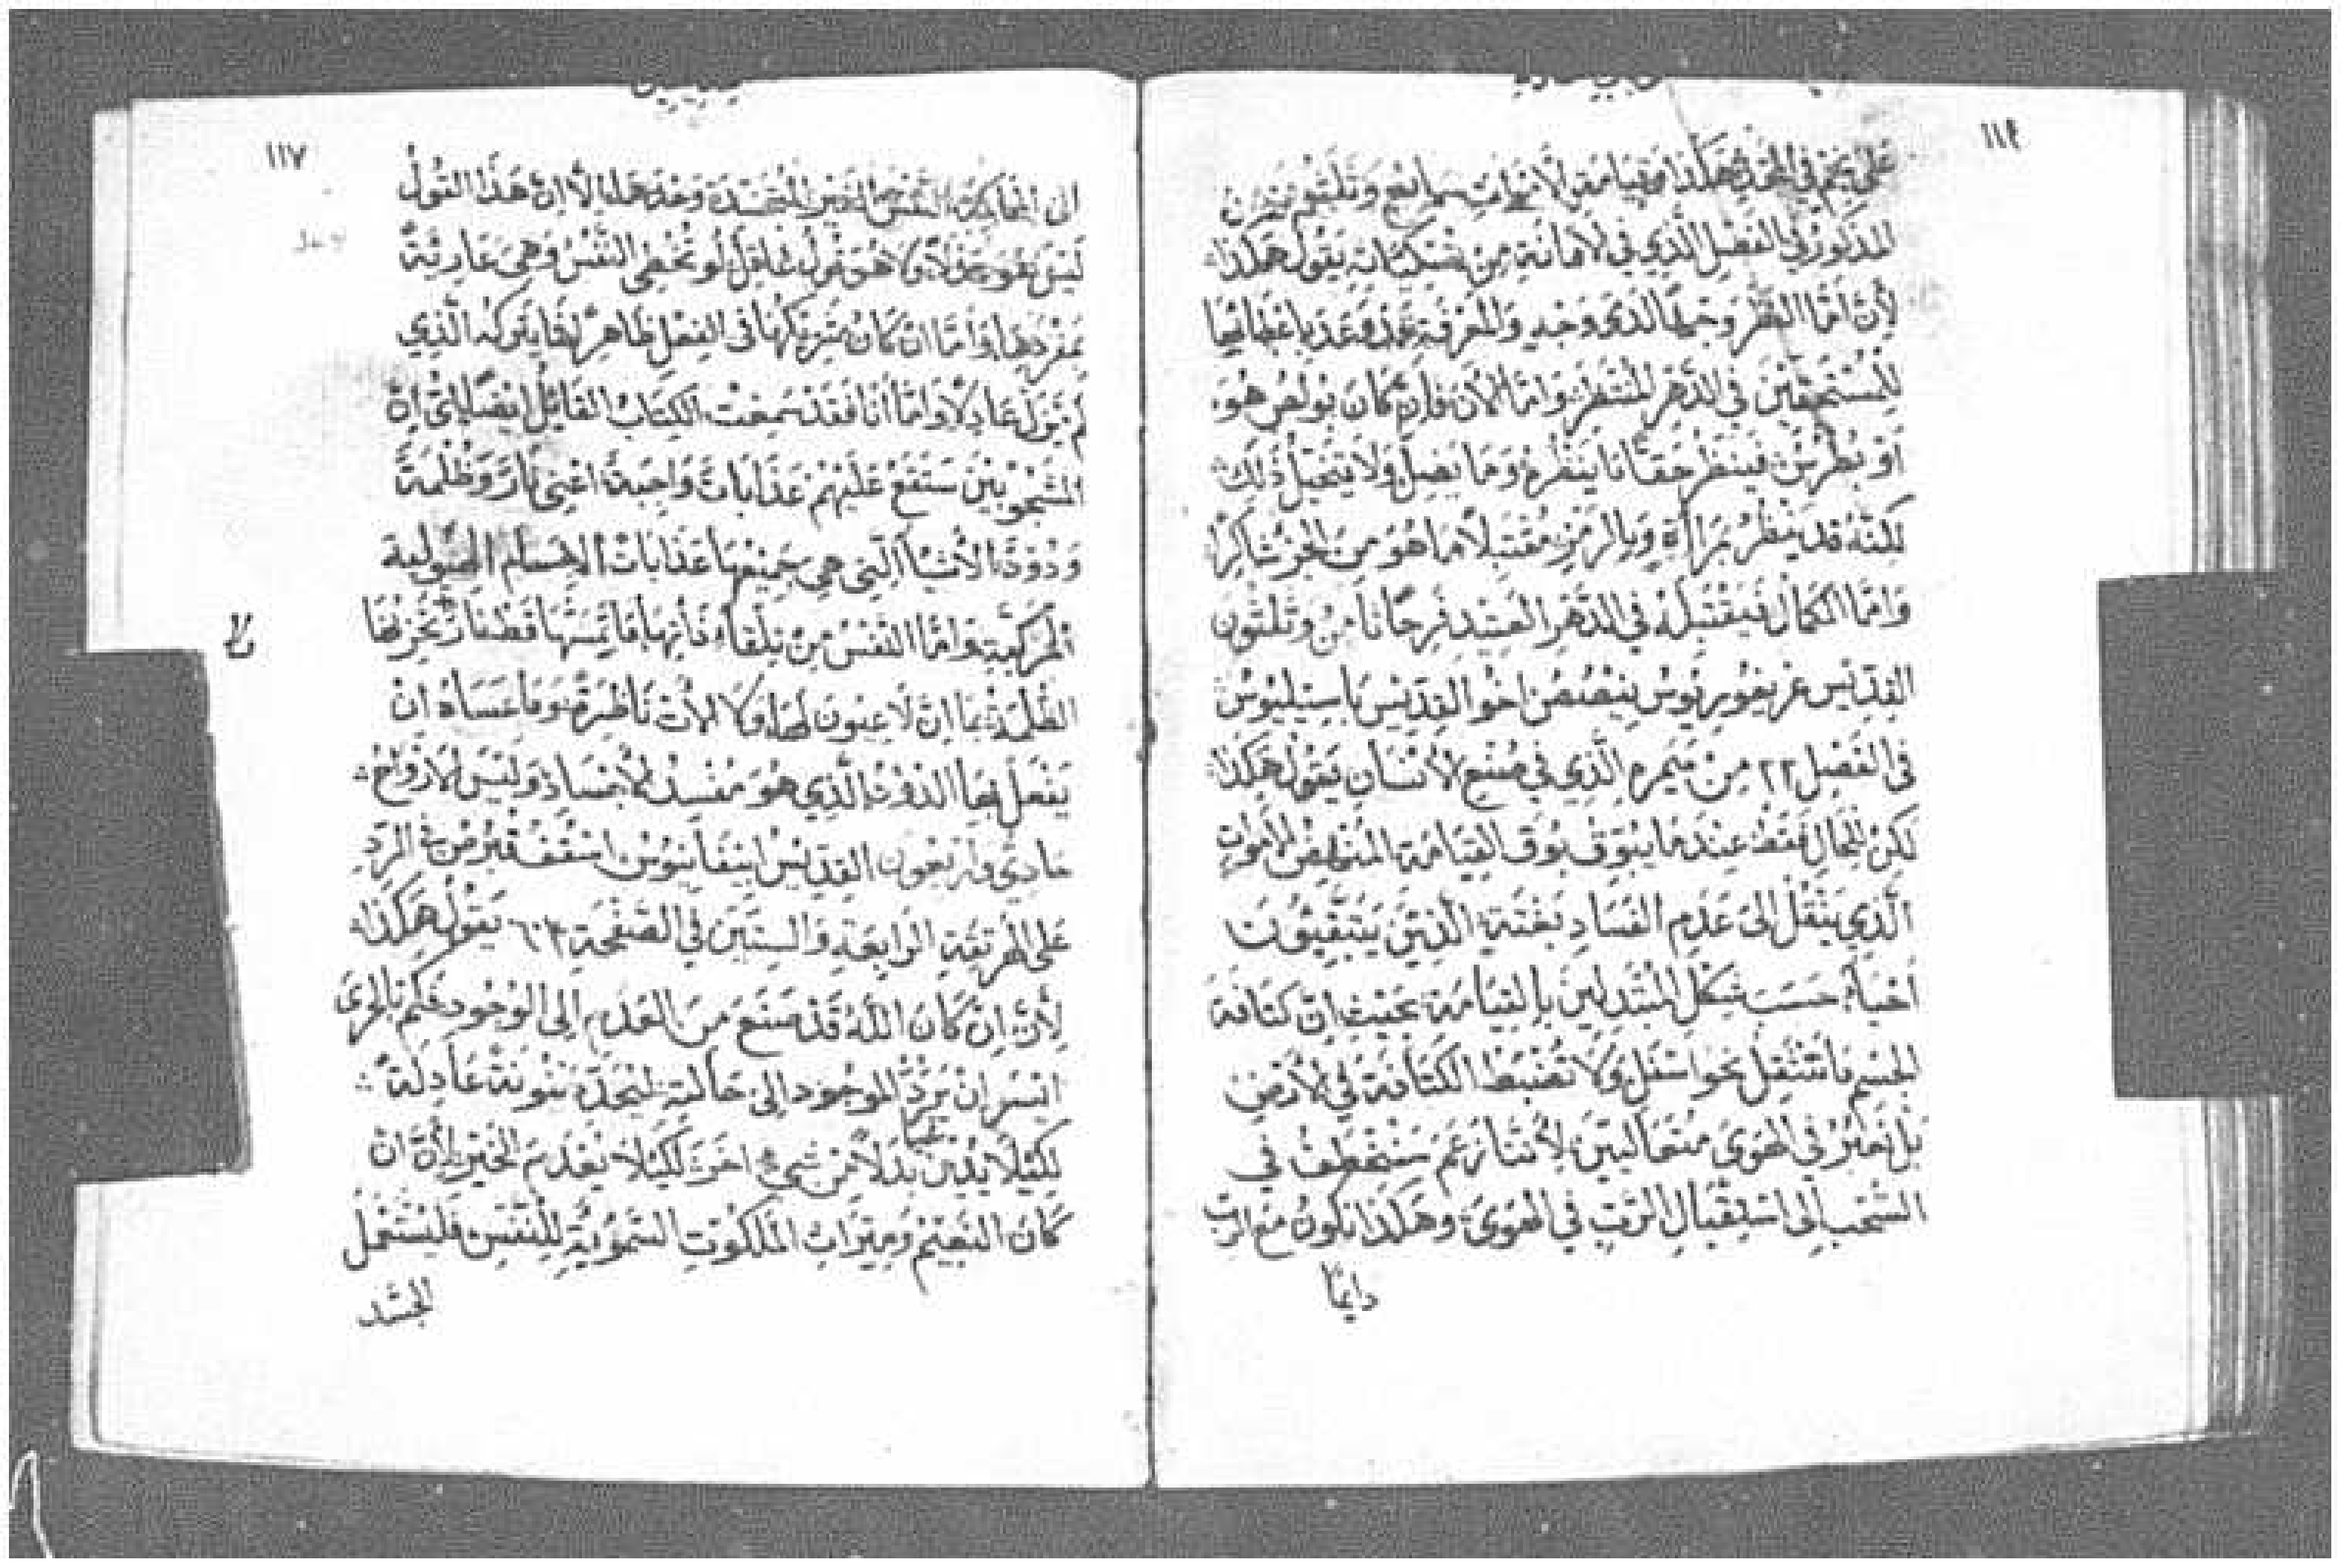 ١١٦
على نجم في المجد هكذا وقيامة الاموات سابع وثلثون
المذكور في الفصل الذي في الامانة من نسكياته يقول هكذا
لان اما النظر وجهًا الذي وجه والمعرفة قد وعد باعطائها
للمستحقين في الدهر المنتظر واما الان فان كان بولص هو
او بطرس فينظر حقًا ما ينظره وما يضل ولا يتخيل ذلك
لكنه قد ينظر بمراءة وبالرمز مقتبلًا ما هو من الجز شاكرًا
واما الكمال فيقتبله في الدهر العتيد فرحًا ثامن وثلثون
القديس غريغوريوس نيصص اخو القديس باسيليوس
في الفصل ٢٢ من ميمره الذي في صنع الانسان يقول هكذا
لكن للحال فقط عندما يبوق بوق القيامة المنهض الاموات
الذي ينقل الى عدم الفساد بغتة الذين يتبقيون
احياء حسب شكل المبتدلين بالقيامة بحيث ان كثافة
الجسم ما تتثقل نحو اسفل ولا تضبط الكثافة في الارض
بل نعبر في الهوى متعاليين لاننا زعم سنخطف في
السحب الى استقبال الرب في الهوى وهكذا نكون مع الرب
دايمًا
١١٧
الى المحاكمة النفس الغير المتجسدة وحدها الا ان هذا القول
ليس هو هو قول عاقل لو تخطي النفس وهي عارية
بمفردها واما ان كان شريكها في الفعل ظاهر لماذا يتركه الذي
لم يزل عادلًا واما انا فقد سمعت الكتاب القائل ايضًا ان
المشجوبين ستقع عليهم عذابات واجبة اعني نار وظلمة
ودود الاشيا التي هي جميعها عذابات الاجسام الهيولية
المركبة واما النفس من تلقاء ذاتها ما تمسها قط نار تحزنها
الظلمة بما ان لا عيون لها ولا الات ناظرة وما عساه ان
يفعل بها الدود الذي هو مفسد الاجساد وليس الارواح
حادي واربعون القديس ابيفانيوس اسقف قبرص في الرد
على الهرتقة الرابعة والستين في الصفحة ٦٠٤ يقول هكذا
لان ان كان الله قد صنع من العدم الى الوجود فكم بالحرى
ايسر ان يرد الموجود الى حالته ليجد دينونة عادلة
لكيلا يدين بدلًا من شي اخر لكيلا يعدم الخير لان ان
كان النعيم وميراث الملكوت السموية للنفس فليستعمل
الجسد